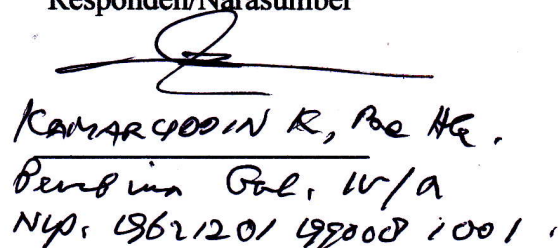 Responden/Narasumber
KAMARUDDIN R,
Pembina Gol. IV/a
Nip. 19621201 199008 1 001.